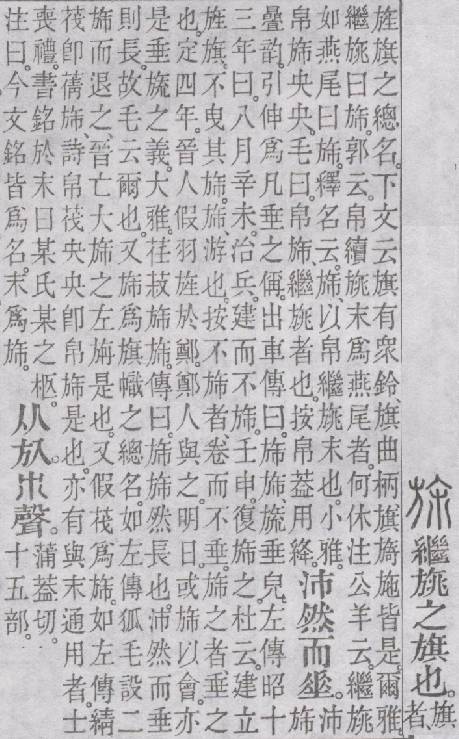 旆繼旐之旗也。旗者、
旌旗之總名。下文云旗有眾鈴、旗曲柄旗、旖施皆是。爾雅
繼旐曰旆。郭云。帛續旐末爲燕尾者。何休注公羊云。繼旐
如燕尾曰旆。釋名云。旆、以帛繼旐末也。小雅。
帛旆央央。毛曰。帛旆、繼旐者也。按帛葢用絳。
沛然而𠂹。沛旆
疊韵。引伸爲凡垂之偁。出車傳曰。旆旆、旒垂皃。左傳昭十
三年曰。八月辛未。治兵。建而不旆。壬申。復旆之。杜云。建立
旌旗。不曳其旆。旆、游也。按不旆者、卷而不垂。旆之者垂之
也。定四年。晉人假羽旌於鄭。鄭人與之。明日。或旆以會。亦
是垂旒之義。大雅。荏菽旆旆。傳曰。旆旆然長也。沛然而垂
則長。故毛云爾也。又旆爲旗幟之總名。如左傳狐毛設二
旆而退之、晉亡大旆之左旃是也。又假茷爲旆。如左傳綪
茷卽蒨旆、詩帛茷央央卽帛旆是也。亦有與末通用者。士
喪禮。書銘於末曰某氏某之柩。
注曰。今文銘皆爲名。末爲旆。
从㫃𣎵聲。蒲葢切。十五部。